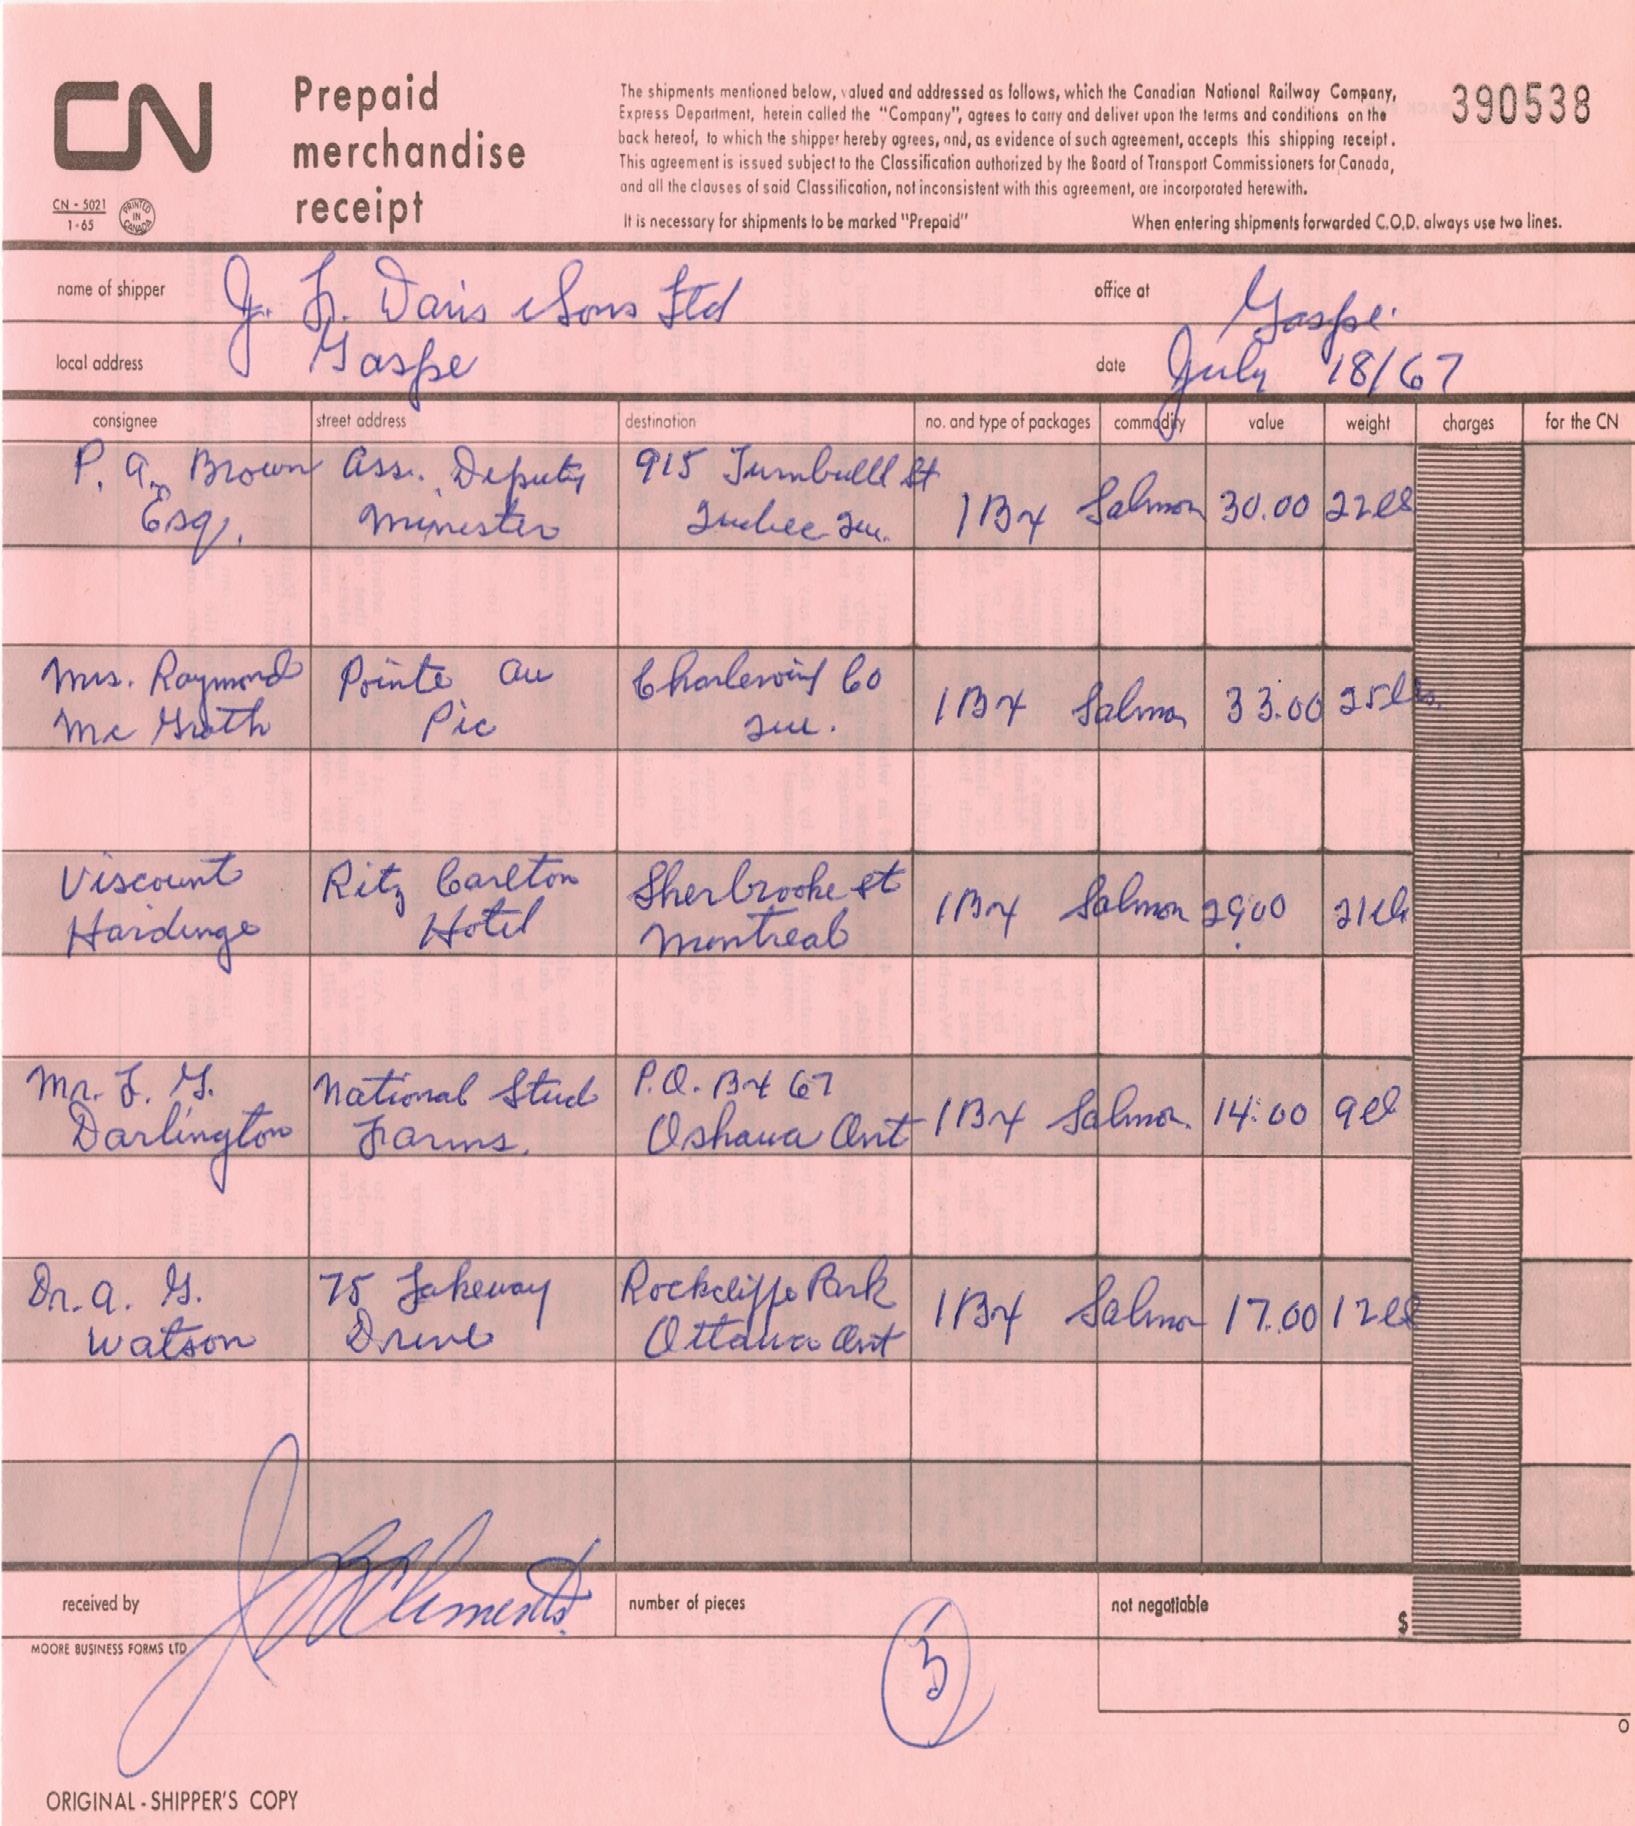 CN
Prepaid
merchandise
receipt
CN - 5021
1-65
PRINTED IN CANADA
The shipments mentioned below, valued and addressed as follows, which the Canadian National Railway Company,
Express Department, herein called the "Company", agrees to carry and deliver upon the terms and conditions on the
back hereof, to which the shipper hereby agrees, and, as evidence of such agreement, accepts this shipping receipt.
This agreement is issued subject to the Classification authorized by the Board of Transport Commissioners for Canada,
and all the clauses of said Classification, not inconsistent with this agreement, are incorporated herewith.
It is necessary for shipments to be marked "Prepaid"
When entering shipments forwarded C.O.D. always use two lines.
390538
name of shipper J. Davis & Sons Ltd
office at Gaspe.
local address Gaspe
date July 18/67
consignee street address destination no. and type of packages commodity value weight charges for the CN
P. A. Brown Ass. Deputy 915 Turnbull St
Esq. Minister Quebec Que. 1 Bx Salmon 30.00 22 lb
Mrs. Raymond Pointe Au Charlevoix Co
Mc Grath Pic Que. 1 Bx Salmon 33.00 25 lbs.
Viscount Ritz Carlton Sherbrooke St
Hardinge Hotel Montreal 1 Bx Salmon 29.00 21 lb
Mr. F. G. National Stud P.O. Bx 67
Darlington Farms. Oshawa Ont 1 Bx Salmon. 14.00 9 lb
Dr. A. G. 75 Lakeway Rockcliffe Park
Watson Drive Ottawa Ont 1 Bx Salmon 17.00 12 lb
received by Clements
number of pieces 5
not negotiable
$
MOORE BUSINESS FORMS LTD.
O
ORIGINAL - SHIPPER'S COPY